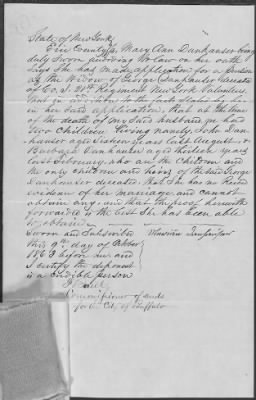 State of New York
Erie County ss Mary Ann Dankauser being
duly Sworn according to Law on her oath
Says She has made application for a pension
as the Widow of George Dankauser Private
of Co. 21st Regiment New York Volunteers
that in addition to the facts Stated by her
in her said application, that at the time
of the death of my said husband he had
two Children living namely, John Dan-
kauser aged Sixteen years last August &
Barbara Dankauser aged thirteen years
last February, who are the Children and
the only children and heirs of the said George
Dankauser deceased that She has no Record
evidence of her marriage, and cannot
obtain any, and that the proof herewith
forwarded is the best She has been able
to obtain
Sworn and Subscribed
this 9th day of October
1863 before me and
I certify the deponent
is a credible person
Commissioner of deeds
for the City of Buffalo